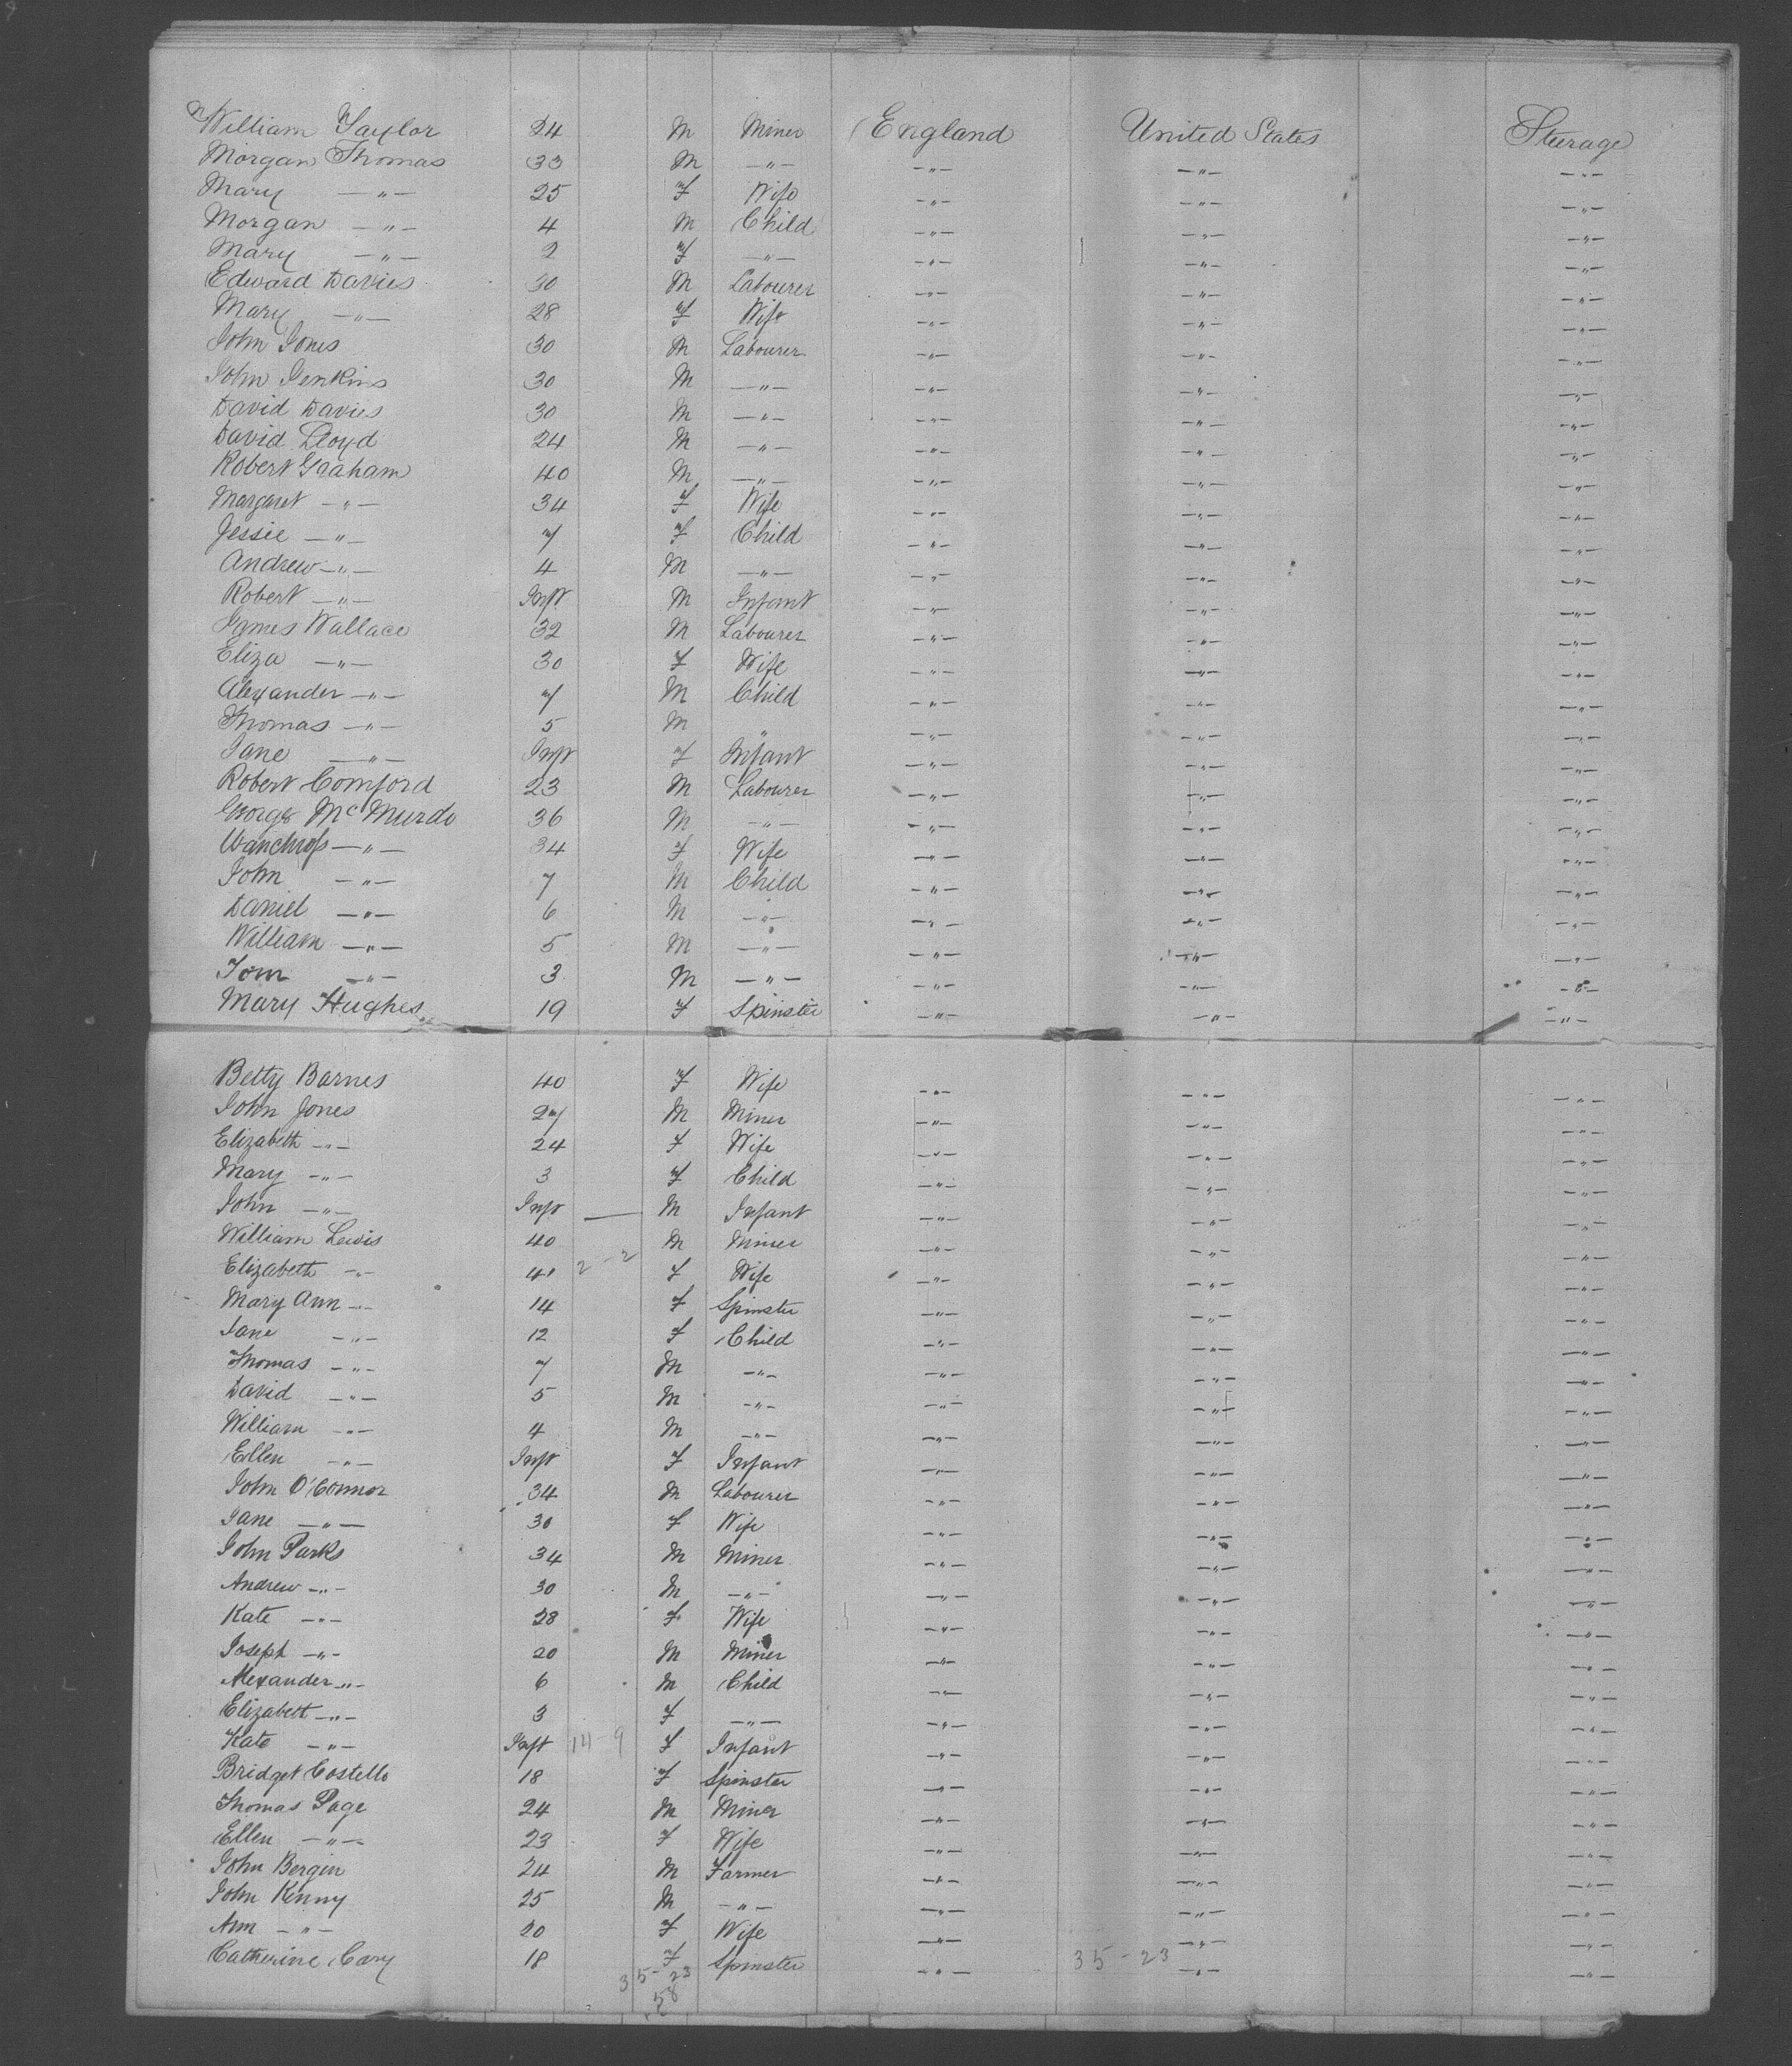 William Taylor 24 M Miner England United States Steerage
Morgan Thomas 33 M —"— —"— —"— —"—
Mary —"— 25 F Wife —"— —"— —"—
Morgan —"— 4 M Child —"— —"— —"—
Mary —"— 2 F —"— —"— —"— —"—
Edward Davies 30 M Labourer —"— —"— —"—
Mary —"— 28 F Wife —"— —"— —"—
John Jones 30 M Labourer —"— —"— —"—
John Jenkins 30 M —"— —"— —"— —"—
David Davies 30 M —"— —"— —"— —"—
David Lloyd 24 M —"— —"— —"— —"—
Robert Graham 40 M —"— —"— —"— —"—
Margaret —"— 34 F Wife —"— —"— —"—
Jessie —"— 7 F Child —"— —"— —"—
Andrew —"— 4 M —"— —"— —"— —"—
Robert —"— Inft M Infant —"— —"— —"—
James Wallace 32 M Labourer —"— —"— —"—
Eliza —"— 30 F Wife —"— —"— —"—
Alexander —"— 7 M Child —"— —"— —"—
Thomas —"— 5 M " —"— —"— —"—
Jane —"— Inft F Infant —"— —"— —"—
Robert Comford 23 M Labourer —"— —"— —"—
George McMurdo 36 M —"— —"— —"— —"—
—"— 34 F Wife —"— —"— —"—
John —"— 7 M Child —"— —"— —"—
Daniel —"— 6 M —"— —"— —"— —"—
William —"— 5 M —"— —"— —"— —"—
Tom —"— 3 M —"— —"— —"— —"—
Mary Hughes 19 F Spinster —"— —"— —"—
Betty Barnes 40 F Wife —"— —"— —"—
John Jones 27 M Miner —"— —"— —"—
Elizabeth —"— 24 F Wife —"— —"— —"—
Mary —"— 3 F Child —"— —"— —"—
John —"— Inft M Infant —"— —"— —"—
William Lewis 40 M Miner —"— —"— —"—
Elizabeth —"— 41 2-2 F Wife —"— —"— —"—
Mary Ann —"— 14 F Spinster —"— —"— —"—
Jane —"— 12 F Child —"— —"— —"—
Thomas —"— 7 M —"— —"— —"— —"—
David —"— 5 M —"— —"— —"— —"—
William —"— 4 M —"— —"— —"— —"—
Ellen —"— Inft F Infant —"— —"— —"—
John O'Connor 34 M Labourer —"— —"— —"—
Jane —"— 30 F Wife —"— —"— —"—
John Parks 34 M Miner —"— —"— —"—
Andrew —"— 30 M —"— —"— —"— —"—
Kate —"— 28 F Wife —"— —"— —"—
Joseph —"— 20 M Miner —"— —"— —"—
Alexander —"— 6 M Child —"— —"— —"—
Elizabeth —"— 3 F —"— —"— —"— —"—
Kate —"— Inft 14-9 F Infant —"— —"— —"—
Bridget Costello 18 F Spinster —"— —"— —"—
Thomas Page 24 M Miner —"— —"— —"—
Ellen —"— 23 F Wife —"— —"— —"—
John Bergin 24 M Farmer —"— —"— —"—
John Kenny 25 M —"— —"— —"— —"—
Ann —"— 20 F Wife —"— —"— —"—
Catherine Cary 18 F Spinster —"— 35-23 —"— —"—
35-23
58